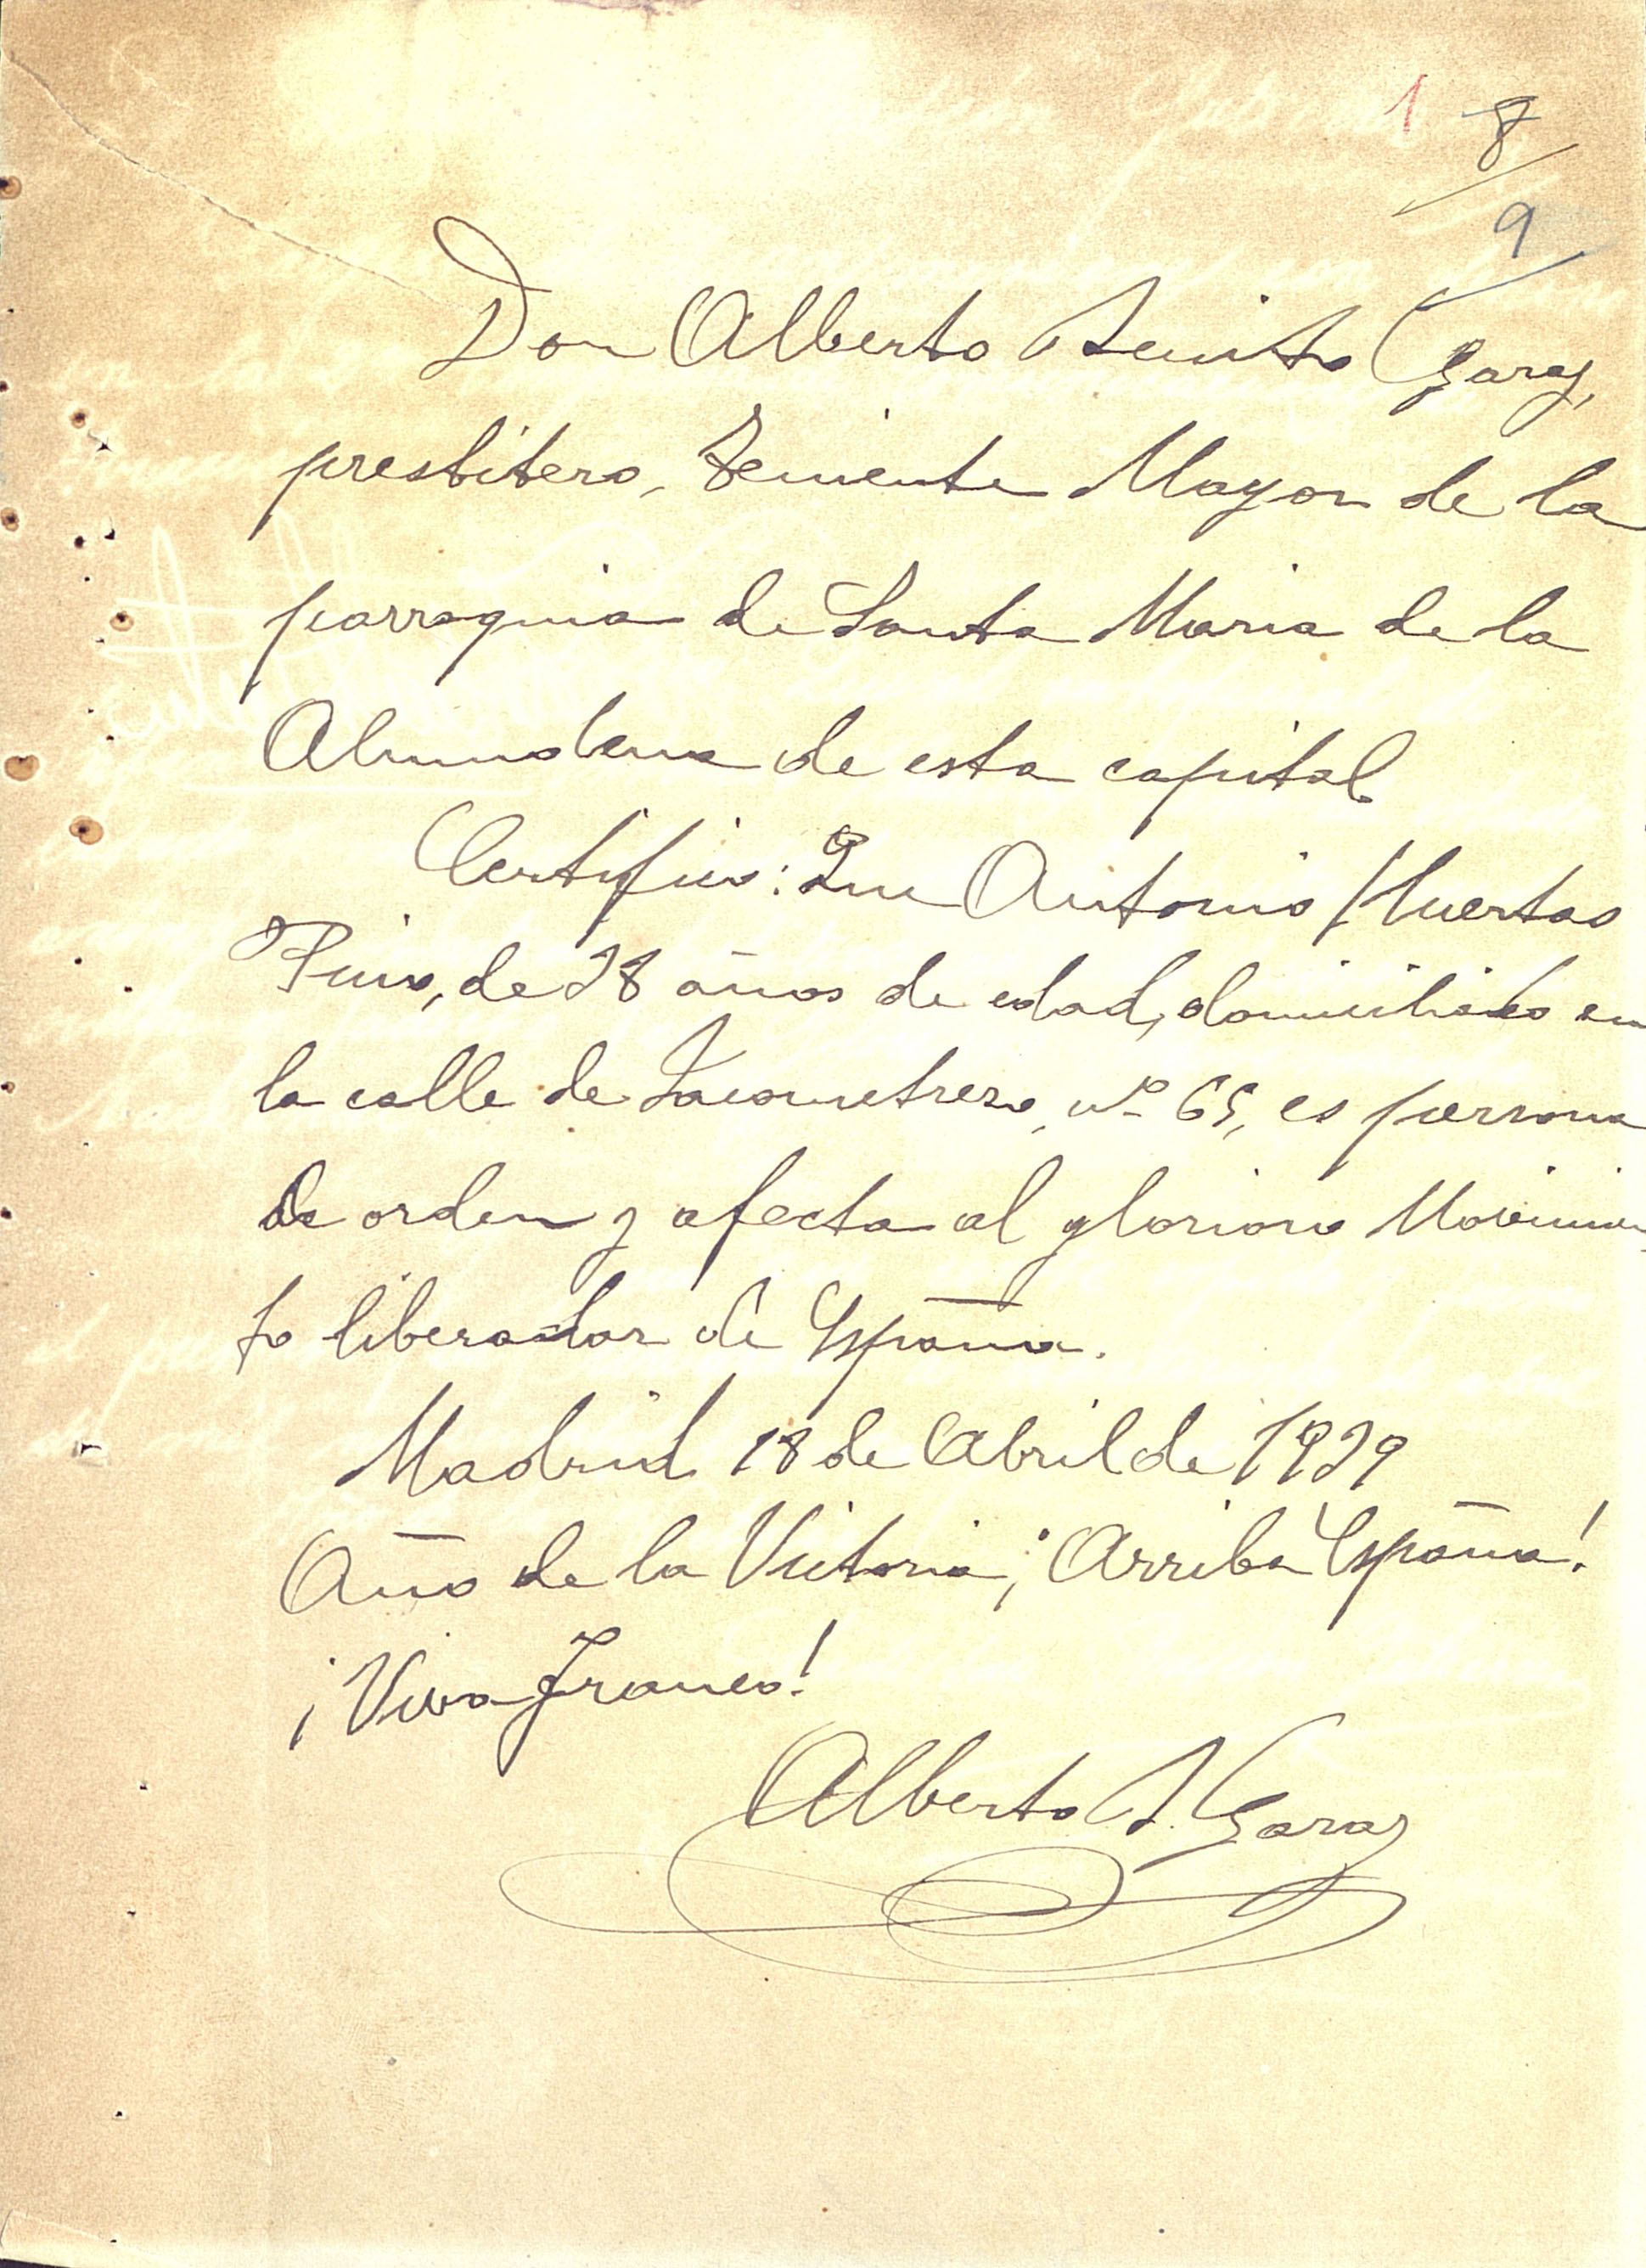 1 8
9
Don Alberto Benito Garay,
presbitero, Teniente Mayor de la
parroquia de Santa Maria de la
Almudena de esta capital.
Certifico: Que Antonio Huertas
de 28 años de edad, domiciliado en
la calle de Jacometrezo, nº 65, es persona
de orden y afecta al glorioso Movimien
to liberador de España.
Madrid 18 de Abril de 1939
Año de la Victoria ¡Arriba España!
¡Viva Franco!
Alberto B. Garay